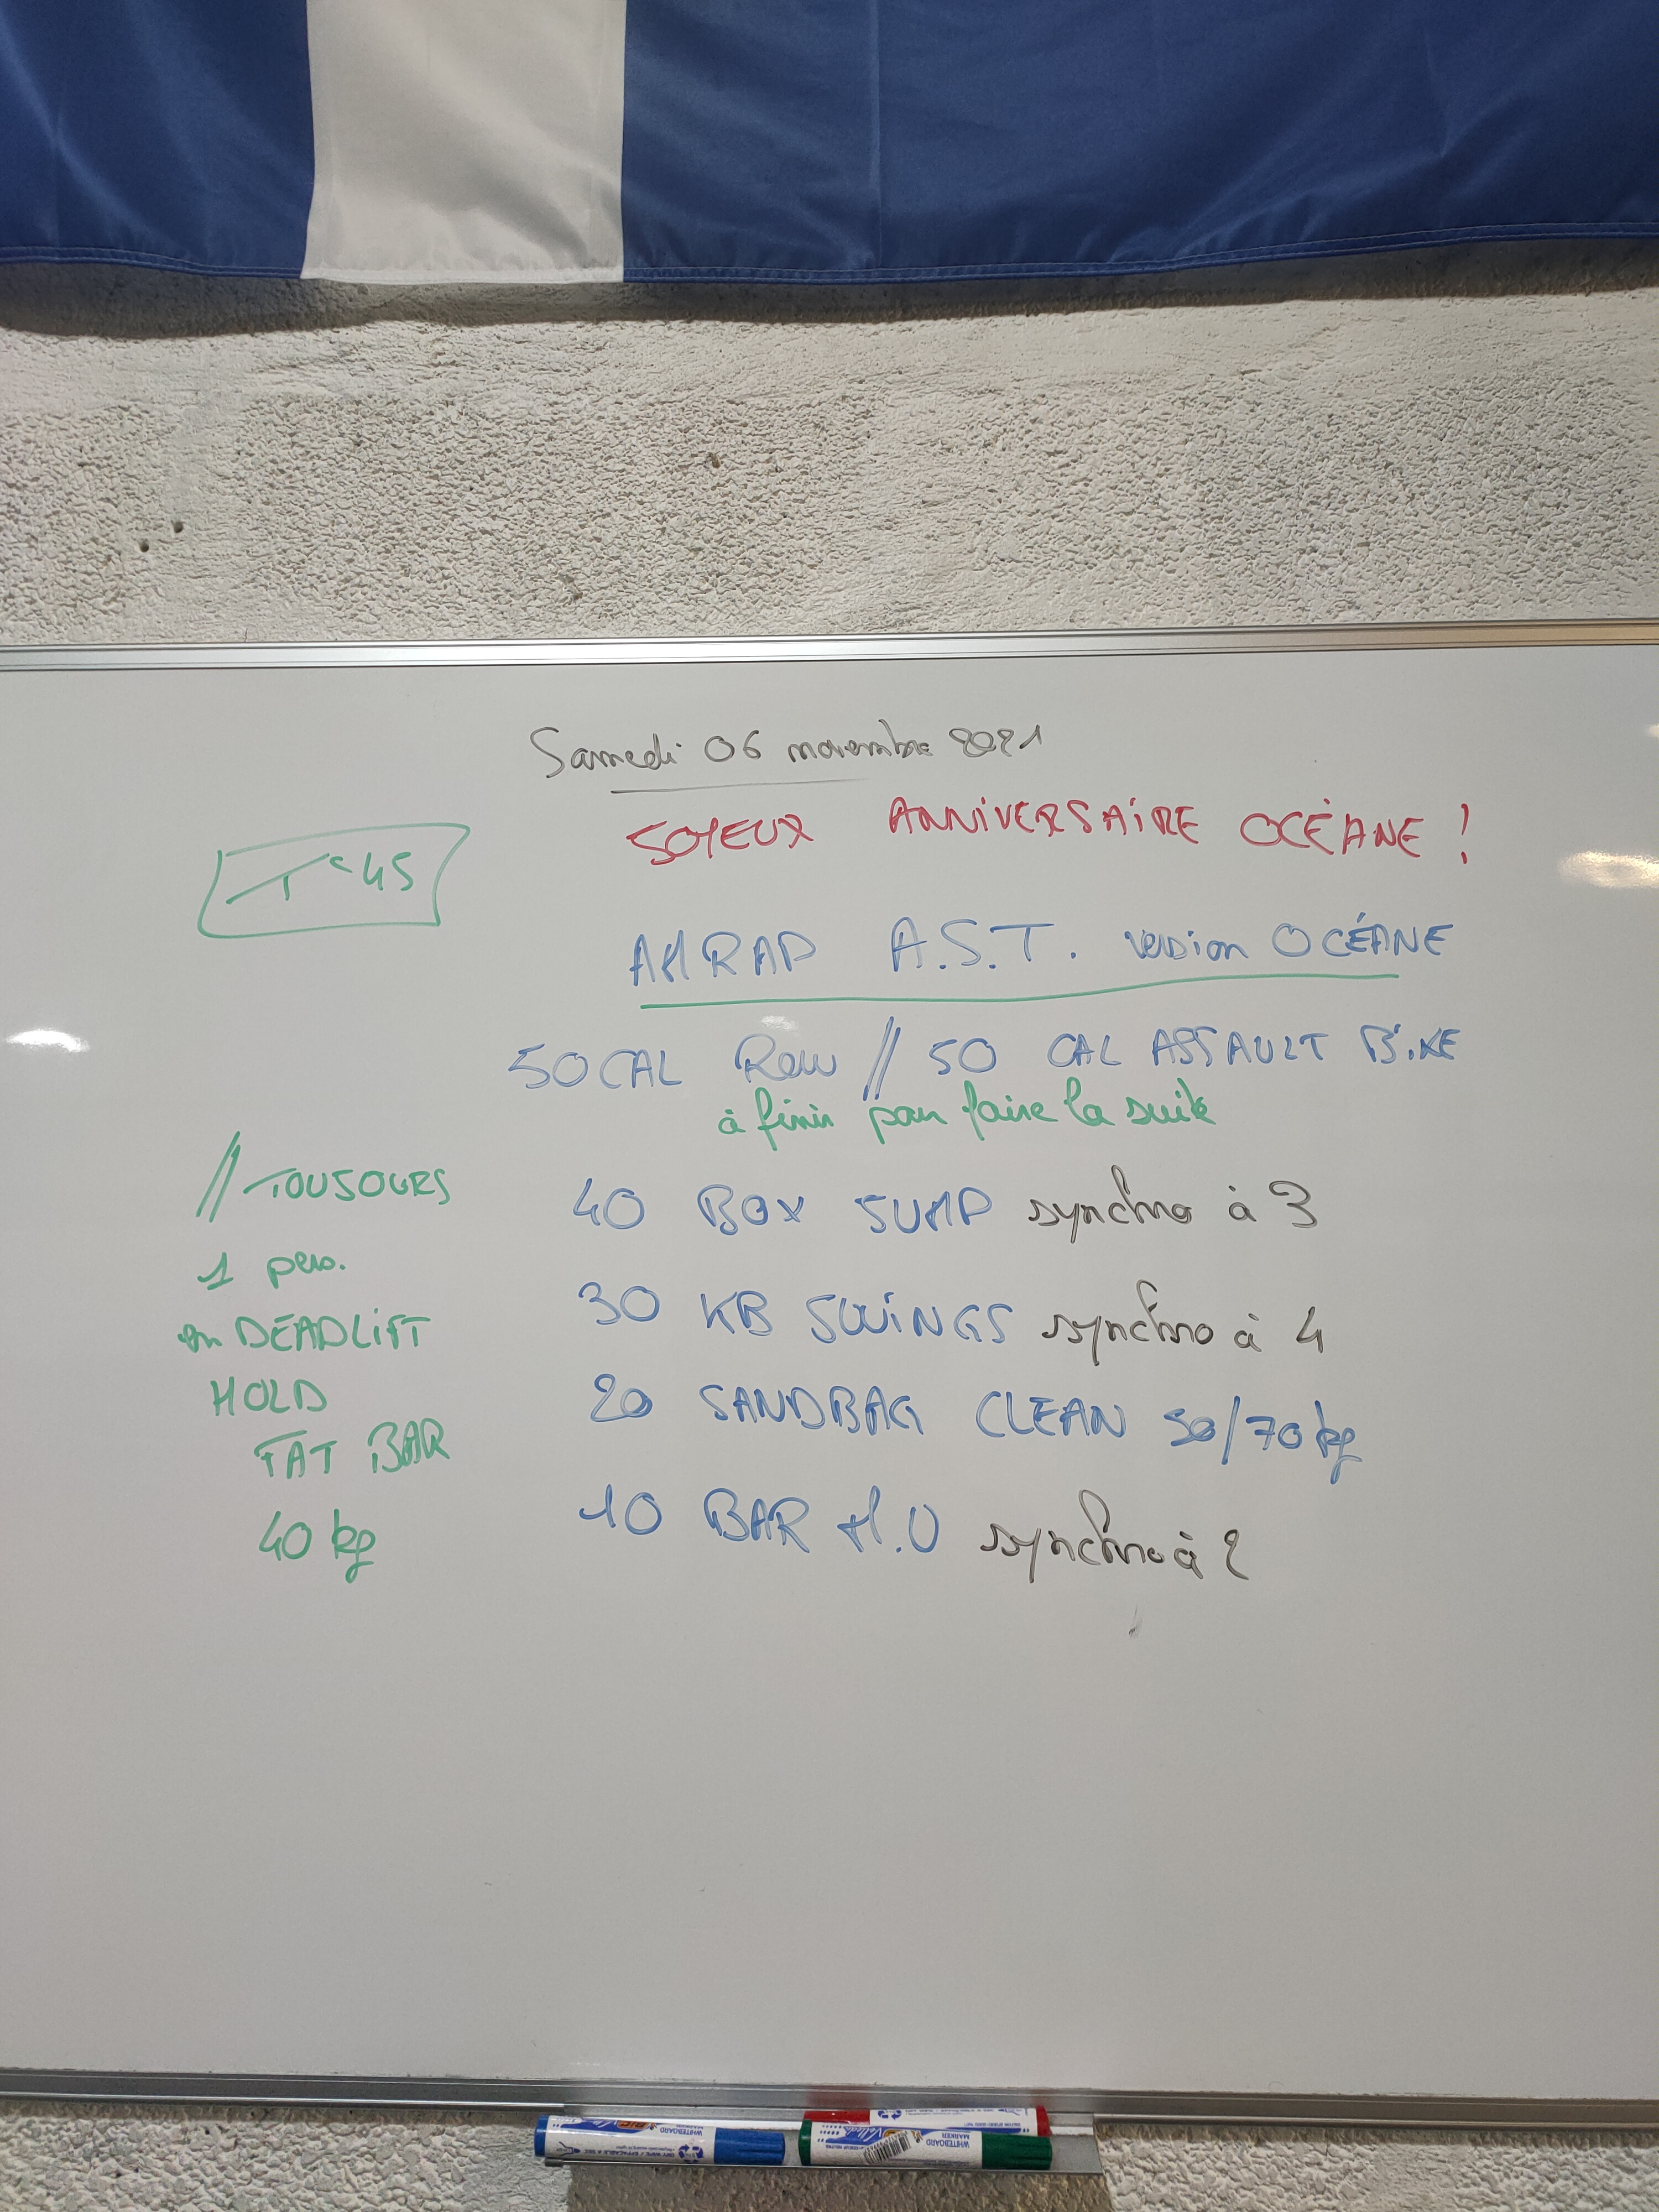 Samedi 06 novembre 2021
JOYEUX ANNIVERSAIRE OCÉANE !
TC 45
AMRAP A.S.T. version OCÉANE
50 CAL Row // 50 CAL ASSAULT BIKE
à finir pour faire la suite
// TOUJOURS
1 pers.
en DEADLIFT
HOLD
FAT BAR
40 kg
40 BOX JUMP synchro à 3
30 KB SWINGS synchro à 4
20 SANDBAG CLEAN 50/70 kg
10 BAR M.U synchro à 2
BIC Velleda
WHITEBOARD
MARKER
WHITEBOARD
MARKER